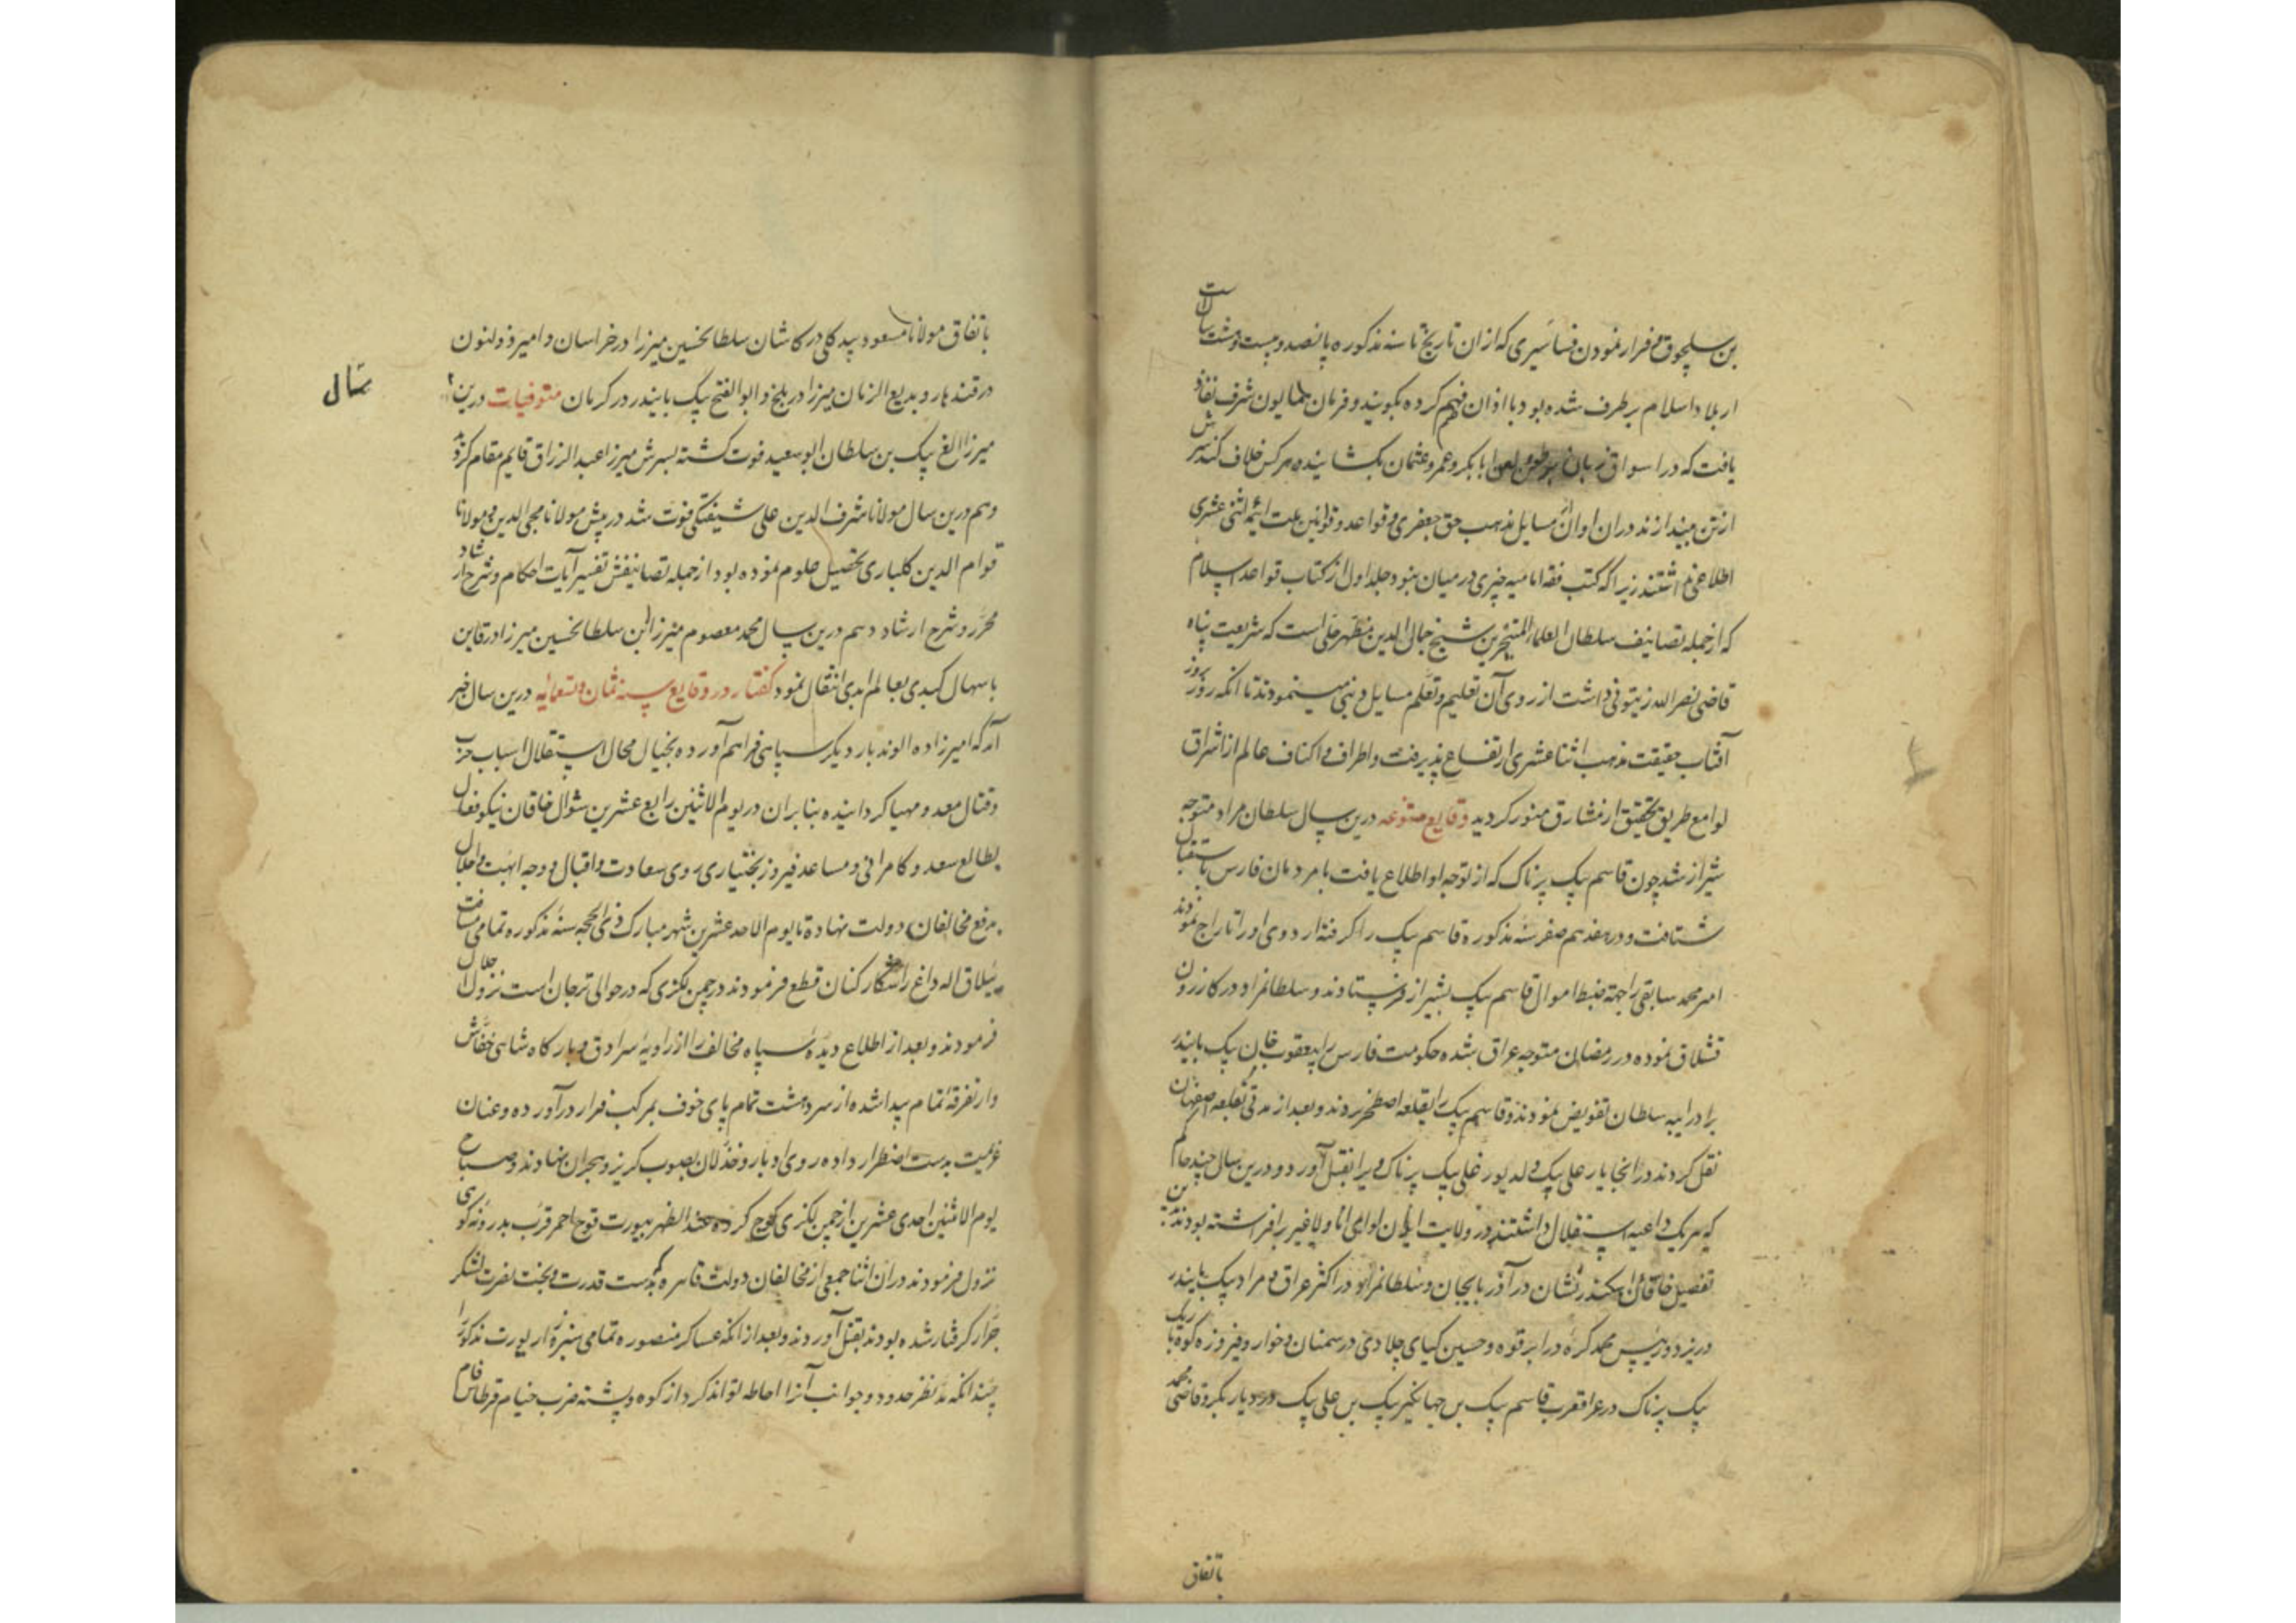 بن سلجوق و فرار نمودن فساسیری که از ان تاریخ تا سنه مذکوره پانصد و بیست و هشت سالست
از بلاد اسلام برطرف شده بود با اذان ضم کرده بگویند و فرمان همایون شرف نفاذ
یافت که در اسواق زبان بطعن و لعن ابابکر و عمر و عثمان بکشایند و هر کس خلاف کند سرش
از تن بیندازند در ان اوان از مسایل مذهب حق جعفری و قواعد و قوانین ملت ائمه اثنی عشری
اطلاعی نداشتند زیرا که کتب فقه امامیه چیزی در میان نبود و جلد اول از کتاب قواعد اسلام
که از جمله تصانیف سلطان العلماء المتبحرین شیخ جمال الدین مطهر حلی است که شریعت پناه
قاضی نصر الله زیتونی داشت از روی آن تعلیم و تعلم مسایل دینی مینمودند تا انکه روز بروز
آفتاب حقیقت مذهب اثنا عشری ارتفاع پذیرفت و اطراف و اکناف عالم از اشراق
لوامع طریق تحقیق از مشارق منور کردید وقایع متنوعه درین سال سلطان مراد متوجه
شیراز شد چون قاسم بیک پرناک که از توجه او اطلاع یافت با مردمان فارس باستقبال
شتافت و در هفدهم صفر سنه مذکوره قاسم بیک را کرفته اردوی او را تاراج نمودند
امیر محمد سابقی را جهة ضبط اموال قاسم بیک بشیراز فرستادند و سلطانمراد در کازرون
قشلاق نموده در رمضان متوجه عراق شده حکومت فارس را بیعقوب خان بیک بایندر
برادر ایبه سلطان تفویض نمودند و قاسم بیک را بقلعه اصطخر بردند و بعد از مدتی بقلعه اصفهان
نقل کردند در انجا یار علی بیک ولد یورغلی بیک پرناک ویرا بقتل آورد و درین سال چند حاکم
که هر یک داعیه استقلال داشتند در ولایت ایران لوای انا ولا غیر برافراشته بودند بدین
تفصیل خاقان اسکندر نشان در آذربایجان و سلطانمراد در اکثر عراق و مراد بیک بایندر
در یزد و رئیس محمد کره در ابرقوه و حسین کیای چلاوی در سمنان و خوار و فیروزه کوه باریک
بیک پرناک در عراقعرب قاسم بیک بن جهانکیر بیک بن علی بیک در دیار بکر و قاضی محمد
باتفاق
باتفاق مولانا مسعود بیدکلی در کاشان سلطانحسین میرزا در خراسان و امیر ذولنون
در قندهار و بدیع الزمان میرزا در بلخ و ابوالفتح بیک بایندر در کرمان متوفیات درین
سال
میرزا الغ بیک بن سلطان ابوسعید فوت کشته پسرش میرزا عبدالرزاق قایم مقام کردید
و هم درین سال مولانا شرف الدین علی شیفتکی فوت شد در پیش مولانا محیی الدین و مولانا
قوام الدین کلباری تحصیل علوم نموده بود از جمله تصانیفش تفسیر آیات احکام و شرح ارشاد
محرر و شرح ارشاد و هم درین سال محمد معصوم میرزا بن سلطانحسین میرزا در قاین
باسهال کبدی بعالم ابدی انتقال نمود کفتار در وقایع سنه ثمان و تسعمایه درین سال خبر
آمد که امیرزاده الوند بار دیکر سپاهی فراهم آورده بخیال محال استقلال اسباب حرب
و قتال معد و مهیا کردانیده بنابران در یوم الاثنین رابع عشرین شوال خاقان نیکو فعال
بطالع سعد و کامرانی و مساعد فیروز بختیاری روی سعادت و اقبال و وجه ابهت و اجلال
بدفع مخالفان دولت نهاده تا یوم الاحد عشرین شهر مبارک ذی الحجه سنه مذکوره تمامی مسافت
ییلاق اله داغ را شکار کنان قطع فرمودند در چمن لکزی که در حوالی ترجان است نزول اجلال
فرمودند و بعد از اطلاع دیده سپاه مخالف را از زاویه سرادق و بارکاه شاهی خفاش
وار تفرقهٔ تمام پیدا شده از سر دهشت تمام پای خوف بمرکب فرار درآورده و عنان
عزیمت بدست اضطرار داده روی ادبار و خذلان بصوب کریز و هجران نهادند و صباح
یوم الاثنین احدی عشرین از چمن لکزی کوچ کرده عند الظهر بیورت قوج احمر قرب بدرونه کوهی
نزول فرمودند در ان اثنا جمعی از مخالفان دولت قاهره که بدست قدرت و بخت نصرت لشکر
جرار کرفتار شده بودند بقتل آوردند و بعد از انکه عساکر منصوره تمامی سبزه زار یورت مذکور را
چندانکه مد نظر حدود و جوانب آنرا احاطه تواند کرد از کوه و پشته ضرب خیام قرطاس فام